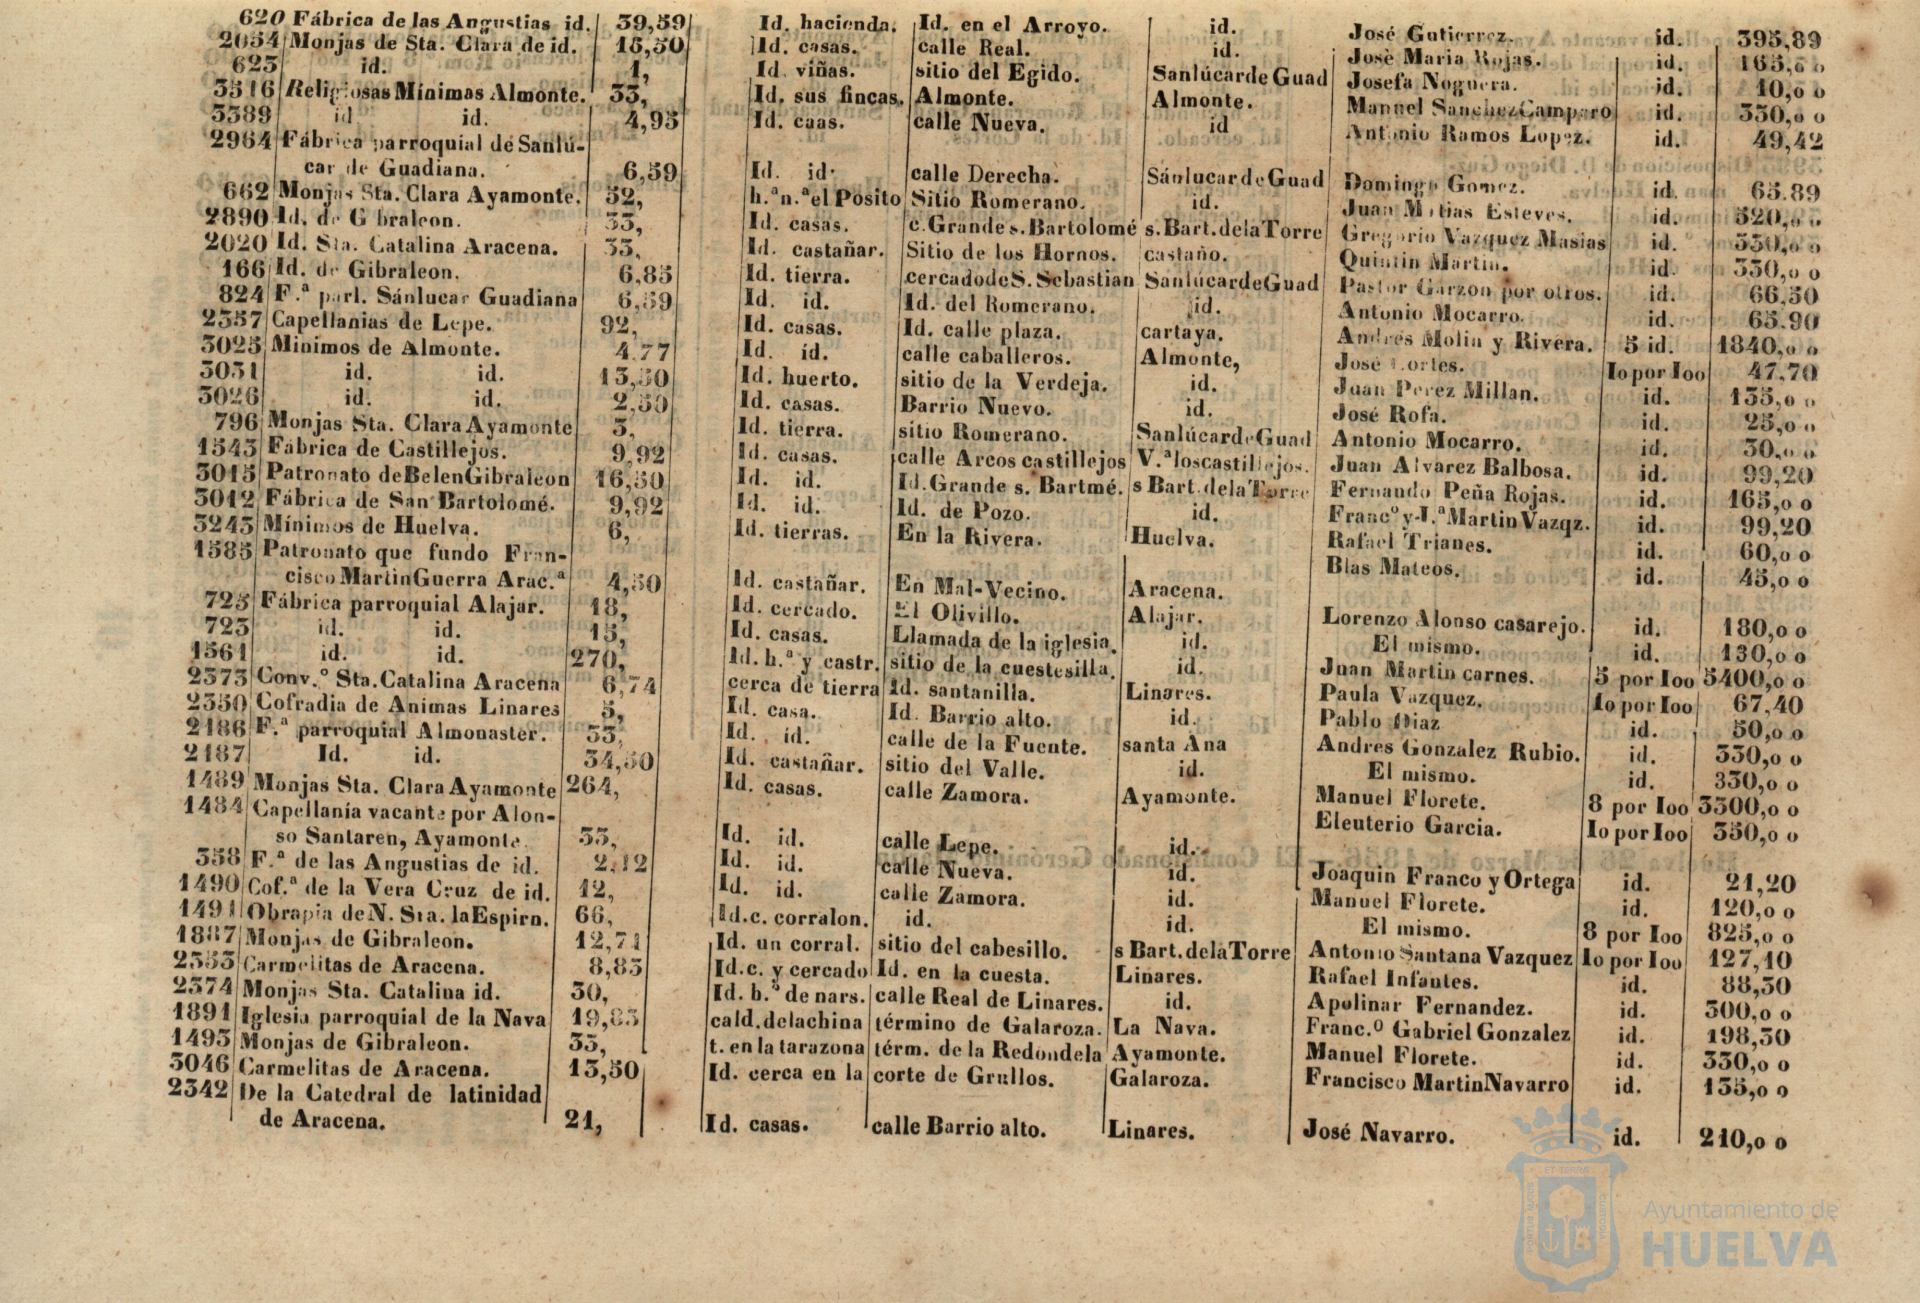 620 Fábrica de las Angustias id. 39,59 Id. hacienda. Id. en el Arroyo. id. José Gutierrez. id. 395,89
2654 Monjas de Sta. Clara de id. 16,50 Id. casas. calle Real. id. Josè Maria Rojas. id. 165,o o
623 id. 1, Id. viñas. sitio del Egido. Sanlúcar de Guad Josefa Noguera. id. 10,o o
3516 Religiosas Mínimas Almonte. 33, Id. sus fincas. Almonte. Almonte. Manuel Sanchez Camparo id. 330,o o
3389 id id. 4,95 Id. caas. calle Nueva. id Antonio Ramos Lopez. id. 49,42
2964 Fábrica parroquial de Sanlú-
car de Guadiana. 6,59 Id. id. calle Derecha. Sánlucar de Guad Domingo Gomez. id. 65.89
662 Monjas Sta. Clara Ayamonte. 52, h.ª n.ª el Posito Sitio Romerano. id. Juan Matias Esteves. id. 520,o o
2890 Id. de Gibraleon. 33, Id. casas. c. Grande s. Bartolomé s. Bart. de la Torre Gregorio Vazquez Masias id. 330,o o
2020 Id. Sta. Catalina Aracena. 33, Id. castañar. Sitio de los Hornos. castaño. Quintin Martin. id. 330,o o
166 Id. de Gibraleon. 6,85 Id. tierra. cercado de S. Sebastian Sanlúcar de Guad Pastor Garzon por otros. id. 66,50
824 F.ª parl. Sánlucar Guadiana 6,59 Id. id. Id. del Romerano. id. Antonio Mocarro. id. 65.90
2357 Capellanias de Lepe. 92, Id. casas. Id. calle plaza. cartaya. Andrés Molin y Rivera. 5 id. 1840,o o
3025 Minimos de Almonte. 4.77 Id. id. calle caballeros. Almonte, José Cortes. Io por Ioo 47.70
3031 id. id. 13,50 Id. huerto. sitio de la Verdeja. id. Juan Perez Millan. id. 135,o o
3026 id. id. 2,50 Id. casas. Barrio Nuevo. id. José Rofa. id. 25,o o
796 Monjas Sta. Clara Ayamonte 3, Id. tierra. sitio Romerano. Sanlúcar de Guad Antonio Mocarro. id. 30,o o
1543 Fábrica de Castillejos. 9,92 Id. casas. calle Arcos castillejos V.ª los castillejos. Juan Alvarez Balbosa. id. 99,20
3015 Patronato de Belen Gibraleon 16,50 Id. id. Id. Grande s. Bartmé. s Bart. de la Torre Fernando Peña Rojas. id. 165,o o
3012 Fábrica de San Bartolomé. 9,92 Id. id. Id. de Pozo. id. Franc.º y J.ª Martin Vazqz. id. 99,20
3243 Mínimos de Huelva. 6, Id. tierras. En la Rivera. Huelva. Rafael Trianes. id. 60,o o
1585 Patronato que fundo Fran-
cisco Martin Guerra Arac.ª 4,50 Id. castañar. En Mal-Vecino. Aracena. Blas Mateos. id. 45,o o
725 Fábrica parroquial Alajar. 18, Id. cercado. El Olivillo. Alajar. Lorenzo Alonso casarejo. id. 180,o o
723 id. id. 15, Id. casas. Llamada de la iglesia. id. El mismo. id. 130,o o
1561 id. id. 270, Id. h.ª y castr. sitio de la cuestesilla. id. Juan Martin carnes. 5 por Ioo 5400,o o
2373 Conv.º Sta. Catalina Aracena 6,74 cerca de tierra Id. santanilla. Linares. Paula Vazquez. Io por Ioo 67,40
2350 Cofradia de Animas Linares 5, Id. casa. Id. Barrio alto. id. Pablo Diaz id. 50,o o
2186 F.ª parroquial Almonaster. 33, Id. id. calle de la Fuente. santa Ana Andres Gonzalez Rubio. id. 330,o o
2187 Id. id. 34,50 Id. castañar. sitio del Valle. id. El mismo. id. 330,o o
1489 Monjas Sta. Clara Ayamonte 264, Id. casas. calle Zamora. Ayamonte. Manuel Florete. 8 por Ioo 3300,o o
1484 Capellanía vacante por Alon-
so Santaren, Ayamonte. 35, Id. id. calle Lepe. id. Eleuterio Garcia. Io por Ioo 350,o o
358 F.ª de las Angustias de id. 2,12 Id. id. calle Nueva. id. Joaquin Franco y Ortega id. 21,20
1490 Cof.ª de la Vera Cruz de id. 12, Id. id. calle Zamora. id. Manuel Florete. id. 120,o o
1491 Obrapia de N. Sta. la Espirn. 66, Id. c. corralon. id. id. El mismo. 8 por Ioo 825,o o
1887 Monjas de Gibraleon. 12,71 Id. un corral. sitio del cabesillo. s Bart. de la Torre Antonio Santana Vazquez Io por Ioo 127,10
2353 Carmelitas de Aracena. 8,83 Id. c. y cercado Id. en la cuesta. Linares. Rafael Infantes. id. 88,30
2374 Monjas Sta. Catalina id. 30, Id. h.º de nars. calle Real de Linares. id. Apolinar Fernandez. id. 300,o o
1891 Iglesia parroquial de la Nava 19,83 cald. de la china término de Galaroza. La Nava. Franc.º Gabriel Gonzalez id. 198,30
1493 Monjas de Gibraleon. 33, t. en la tarazona térm. de la Redondela Ayamonte. Manuel Florete. id. 330,o o
3046 Carmelitas de Aracena. 13,50 Id. cerca en la corte de Grullos. Galaroza. Francisco Martin Navarro id. 135,o o
2342 De la Catedral de latinidad
de Aracena. 21, Id. casas. calle Barrio alto. Linares. José Navarro. id. 210,o o
Ayuntamiento de
HUELVA